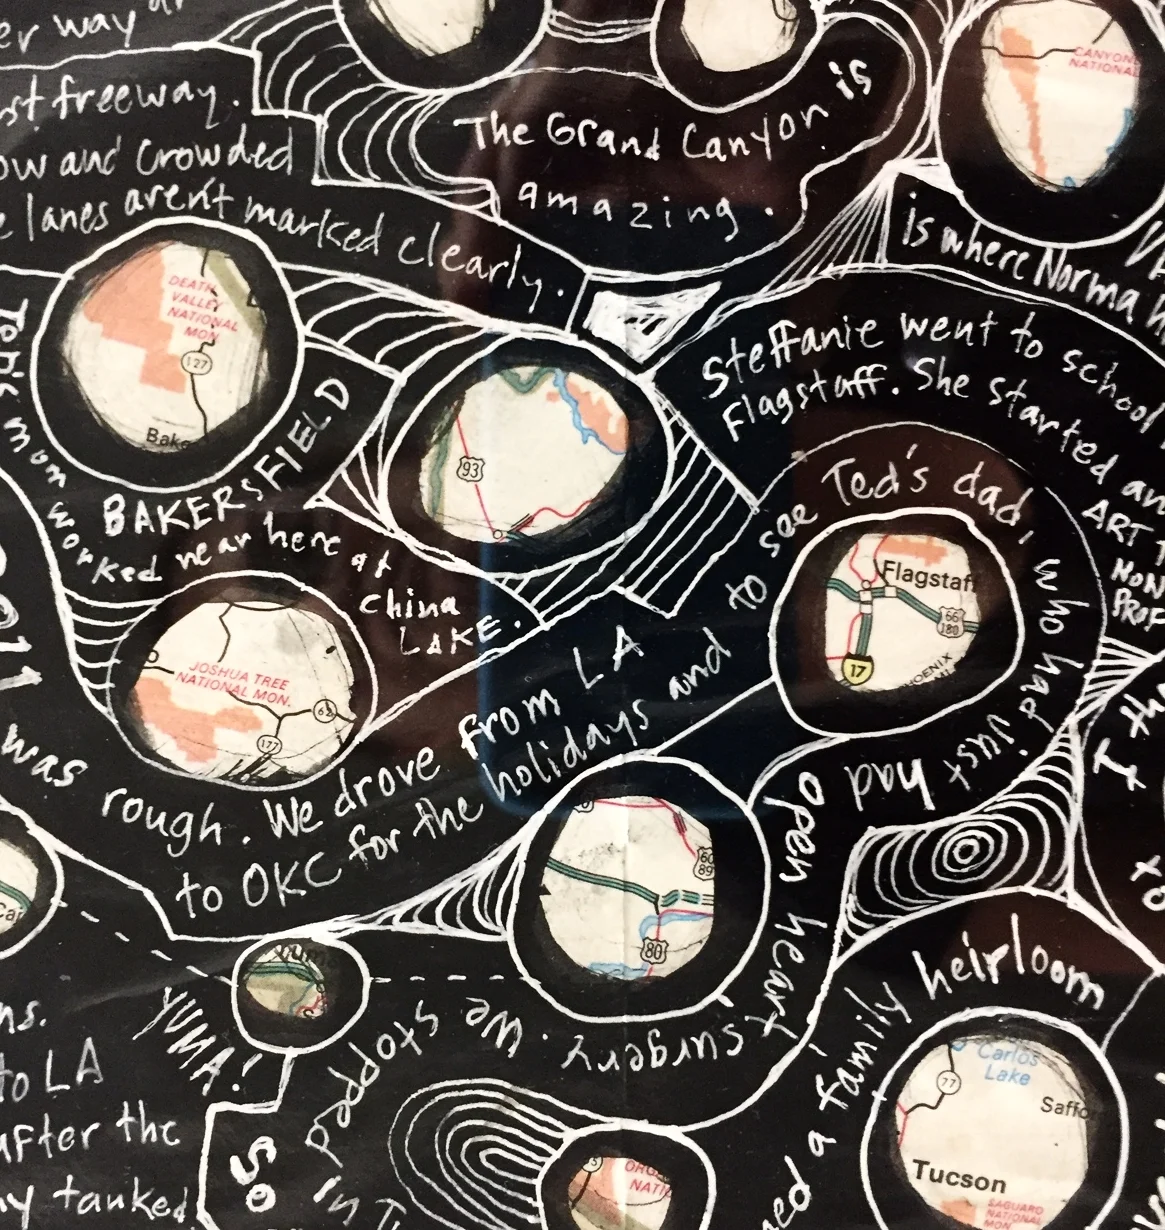 er way
st freeway.
ow and crowded
e lanes aren't marked clearly.
The Grand Canyon is
amazing.
CANYON
NATIONAL
is where Norma
DEATH
VALLEY
NATIONAL
MON.
127
Bake
BAKERSFIELD
Ted's mum worked near here at
China
LAKE.
93
Steffanie went to school
Flagstaff. She started an
ART
NON
PROF
JOSHUA TREE
NATIONAL MON.
62
177
Flagstaff
66
180
17
PHOENIX
2011
was rough. We drove from LA
to OKC for the holidays and
to see Ted's dad, who had just
had open heart surgery. We stopped
in
60
89
80
YUMA!
ns.
to LA
after the
tanked
So
a family heirloom
Carlos
Lake
77
Saffo
Tucson
SAGUARO
NATIONAL
MON
ORG
NATI
I
to